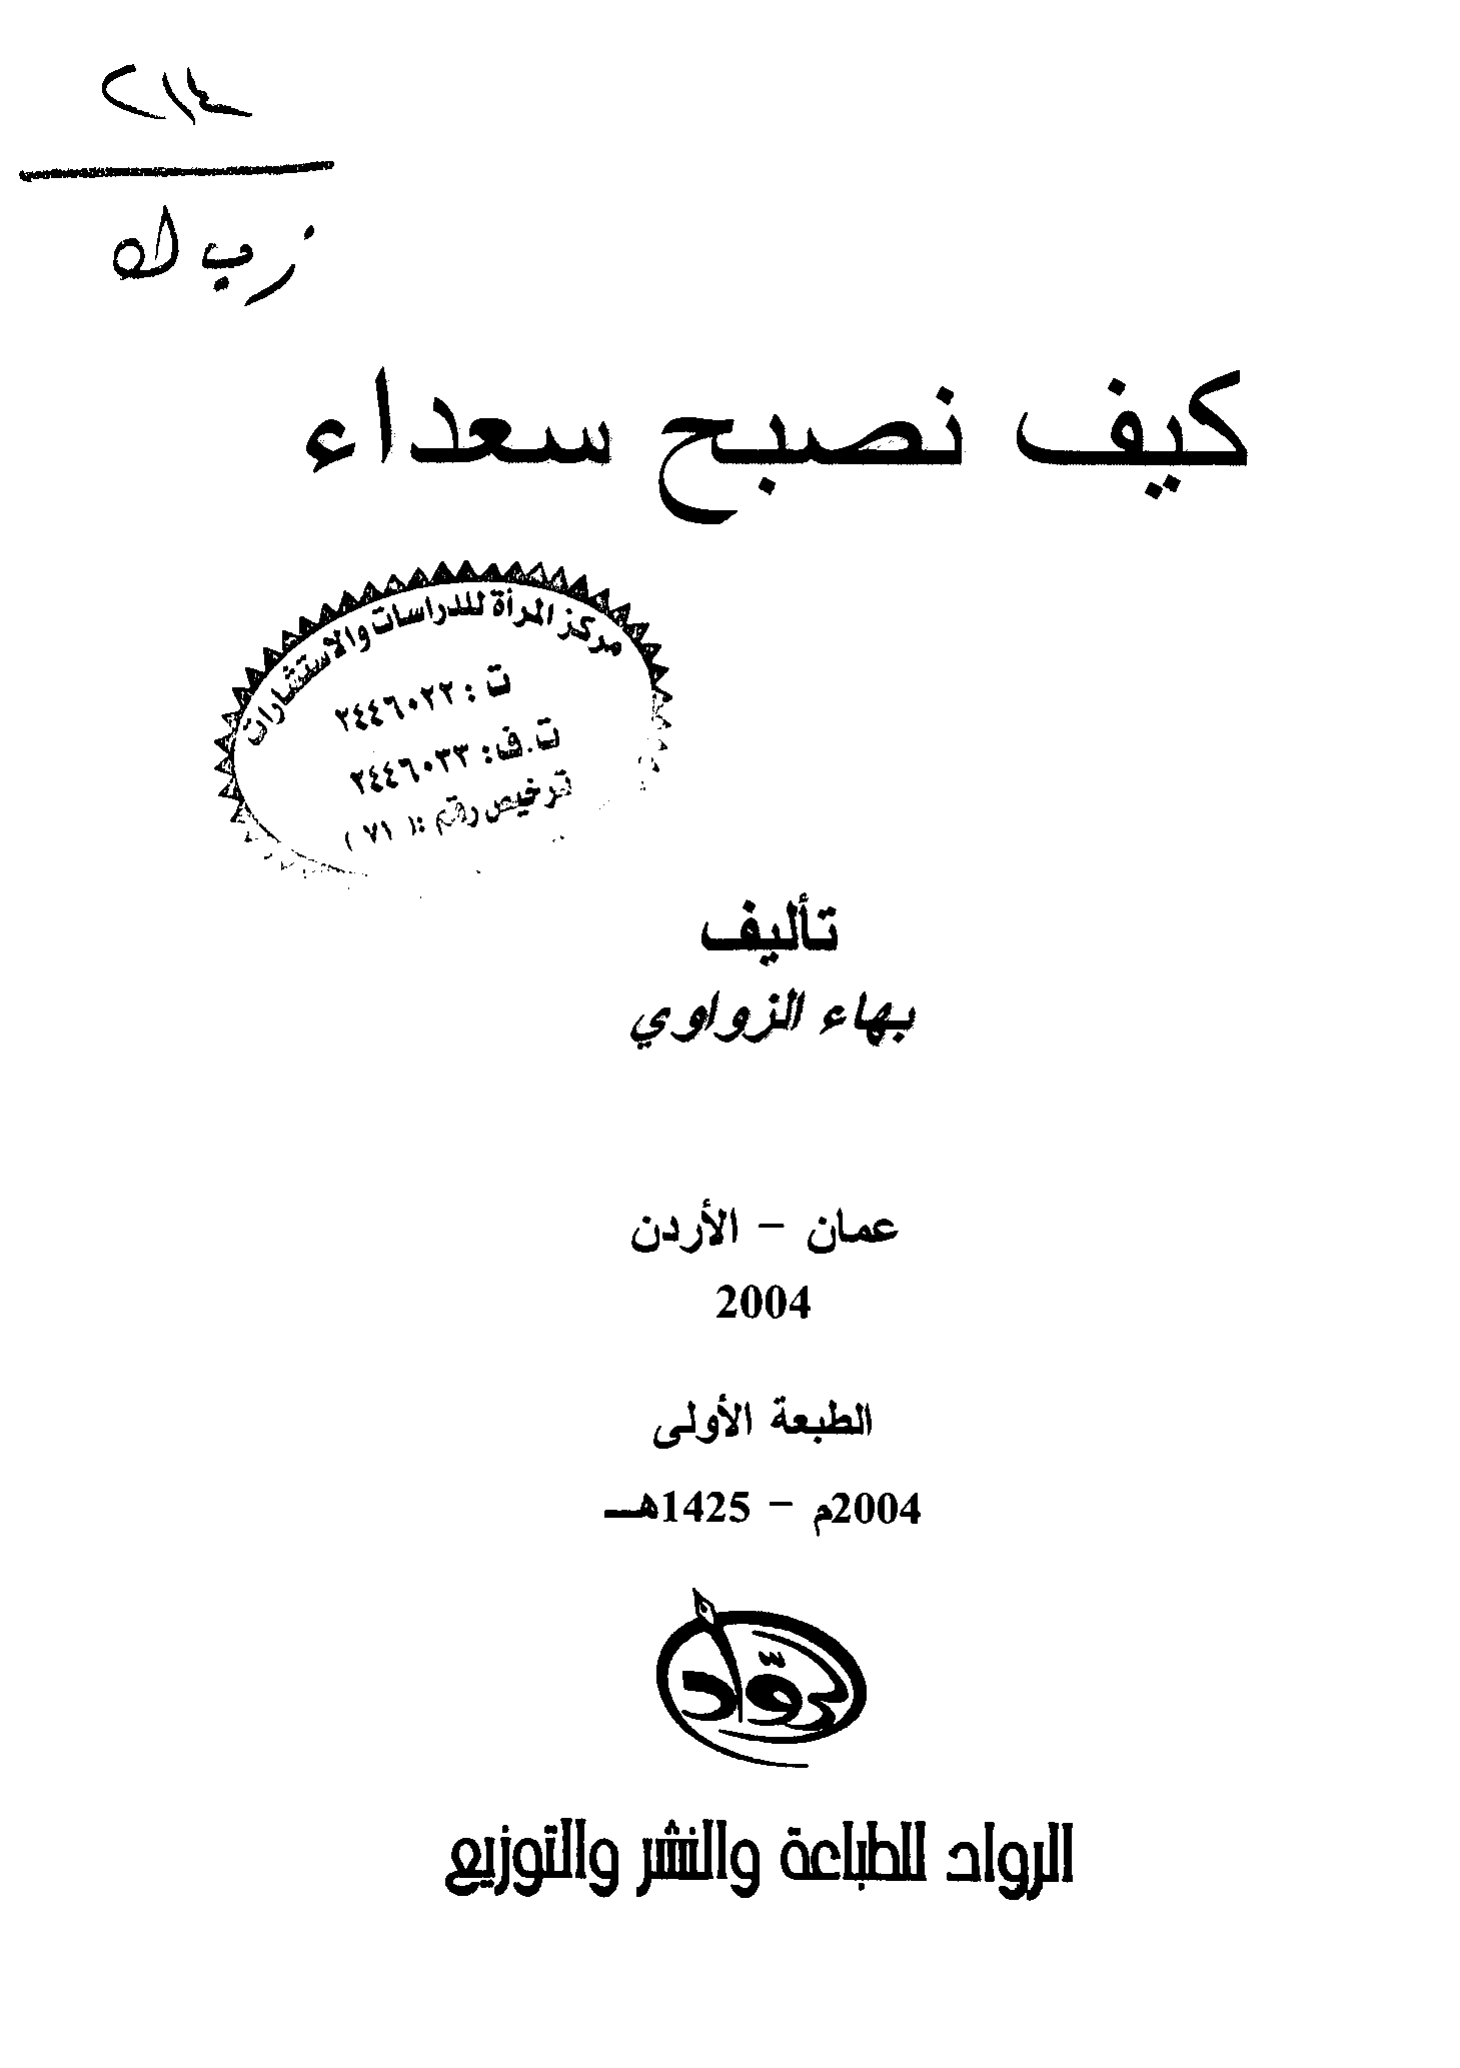 ٢١٤
ز ب ك
كيف نصبح سعداء
مركز المرأة للدراسات والاستشارات
ت : ٢٤٤٦٠٢٢
ت.ف: ٢٤٤٦٠٣٣
ترخيص رقم :( ٧١ )
تأليف
بهاء الزواوي
عمان - الأردن
2004
الطبعة الأولى
2004م - 1425هـ
روّاد
الرواد للطباعة والنشر والتوزيع